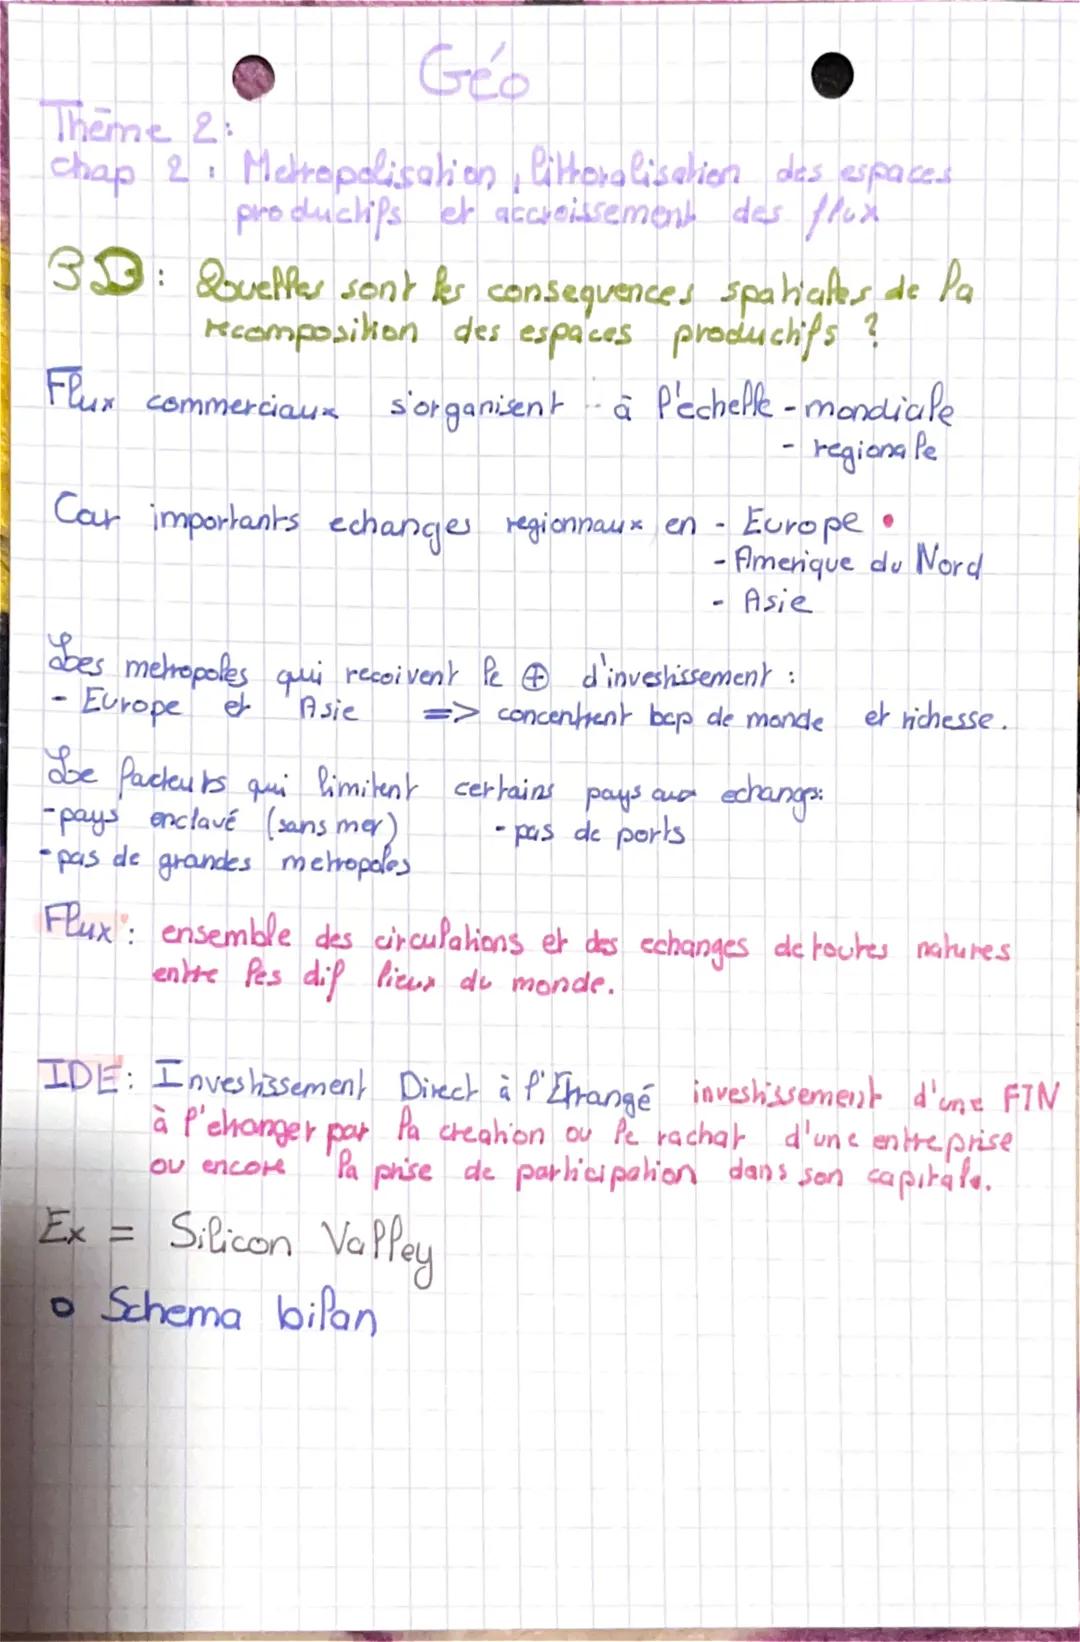 Géo
Thème 2:
chap 2 : Metropolisation, littoralisation des espaces
productifs et accroissement des flux
: Quelles sont les consequences spatiales de la
recomposition des espaces productifs ?
Flux commerciaux s'organisent à l'echelle - mondiale
- regionale
Car importants echanges regionnaux en - Europe
- Amerique du Nord
- Asie
Les metropoles qui recoivent le ⊕ d'investissement :
- Europe et Asie => concentrent bcp de monde et richesse.
Le facteurs qui limitent certains pays aux echanges:
- pays enclavé (sans mer) - pas de ports
- pas de grandes metropoles
Flux : ensemble des circulations et des echanges de toutes natures
entre les dif lieux du monde.
IDE : Investissement Direct à l'Etrangé investissement d'une FTN
à l'etranger par la creation ou le rachat d'une entreprise
ou encore la prise de participation dans son capitale.
Ex = Silicon Valley
o Schema bilan